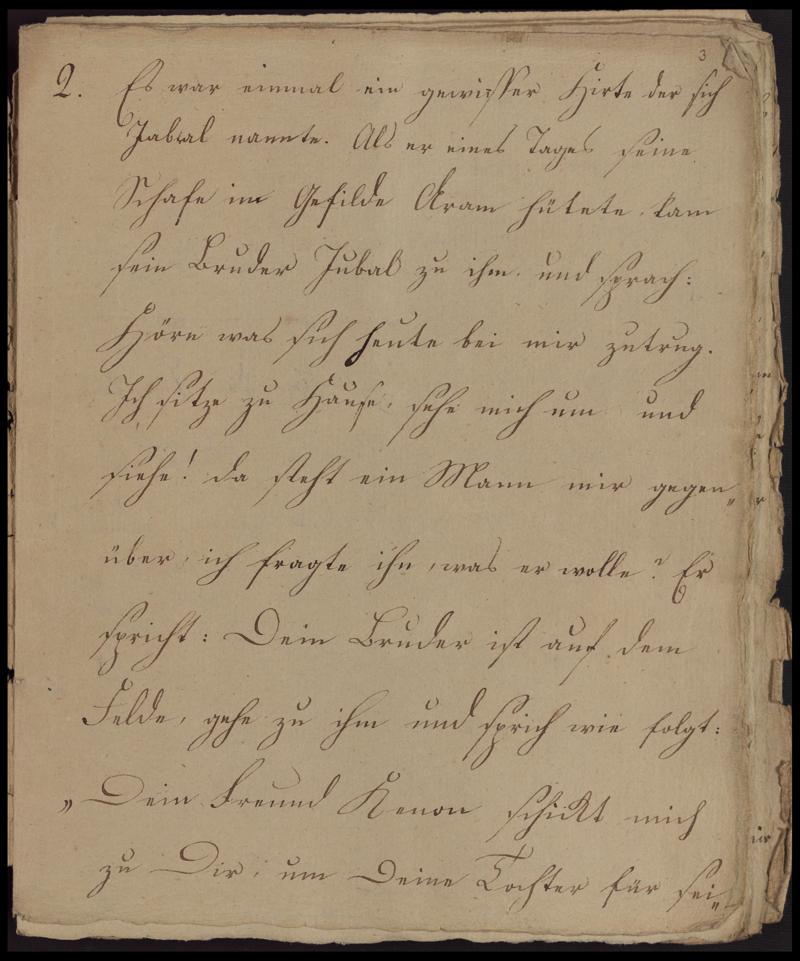 3
2. Es war einmal ein gewisser Hirte der sich
Jabal nannte. Als er eines Tages seine
Schafe im Gefilde Aram hütete, kam
sein Bruder Jubal zu ihm, und sprach:
Höre was sich heute bei mir zutrug.
Ich sitze zu Hause, sehe mich um und
siehe! da steht ein Mann mir gegen„
über, ich fragte ihn, was er wolle? Er
spricht: Dein Bruder ist auf dem
Felde, gehe zu ihm und sprich wie folgt:
„Dein Freund Kenon schickt mich
zu Dir, um Deine Tochter für sei„